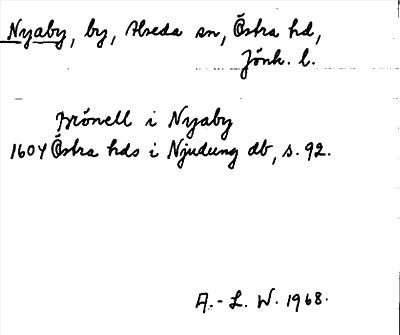 Nyaby, by, Alseda sn, Östra hd,
Jönk. l.
Frönell i Nyaby
1604 Östra hds i Njudung db, s. 92.
A.-L. W. 1968.